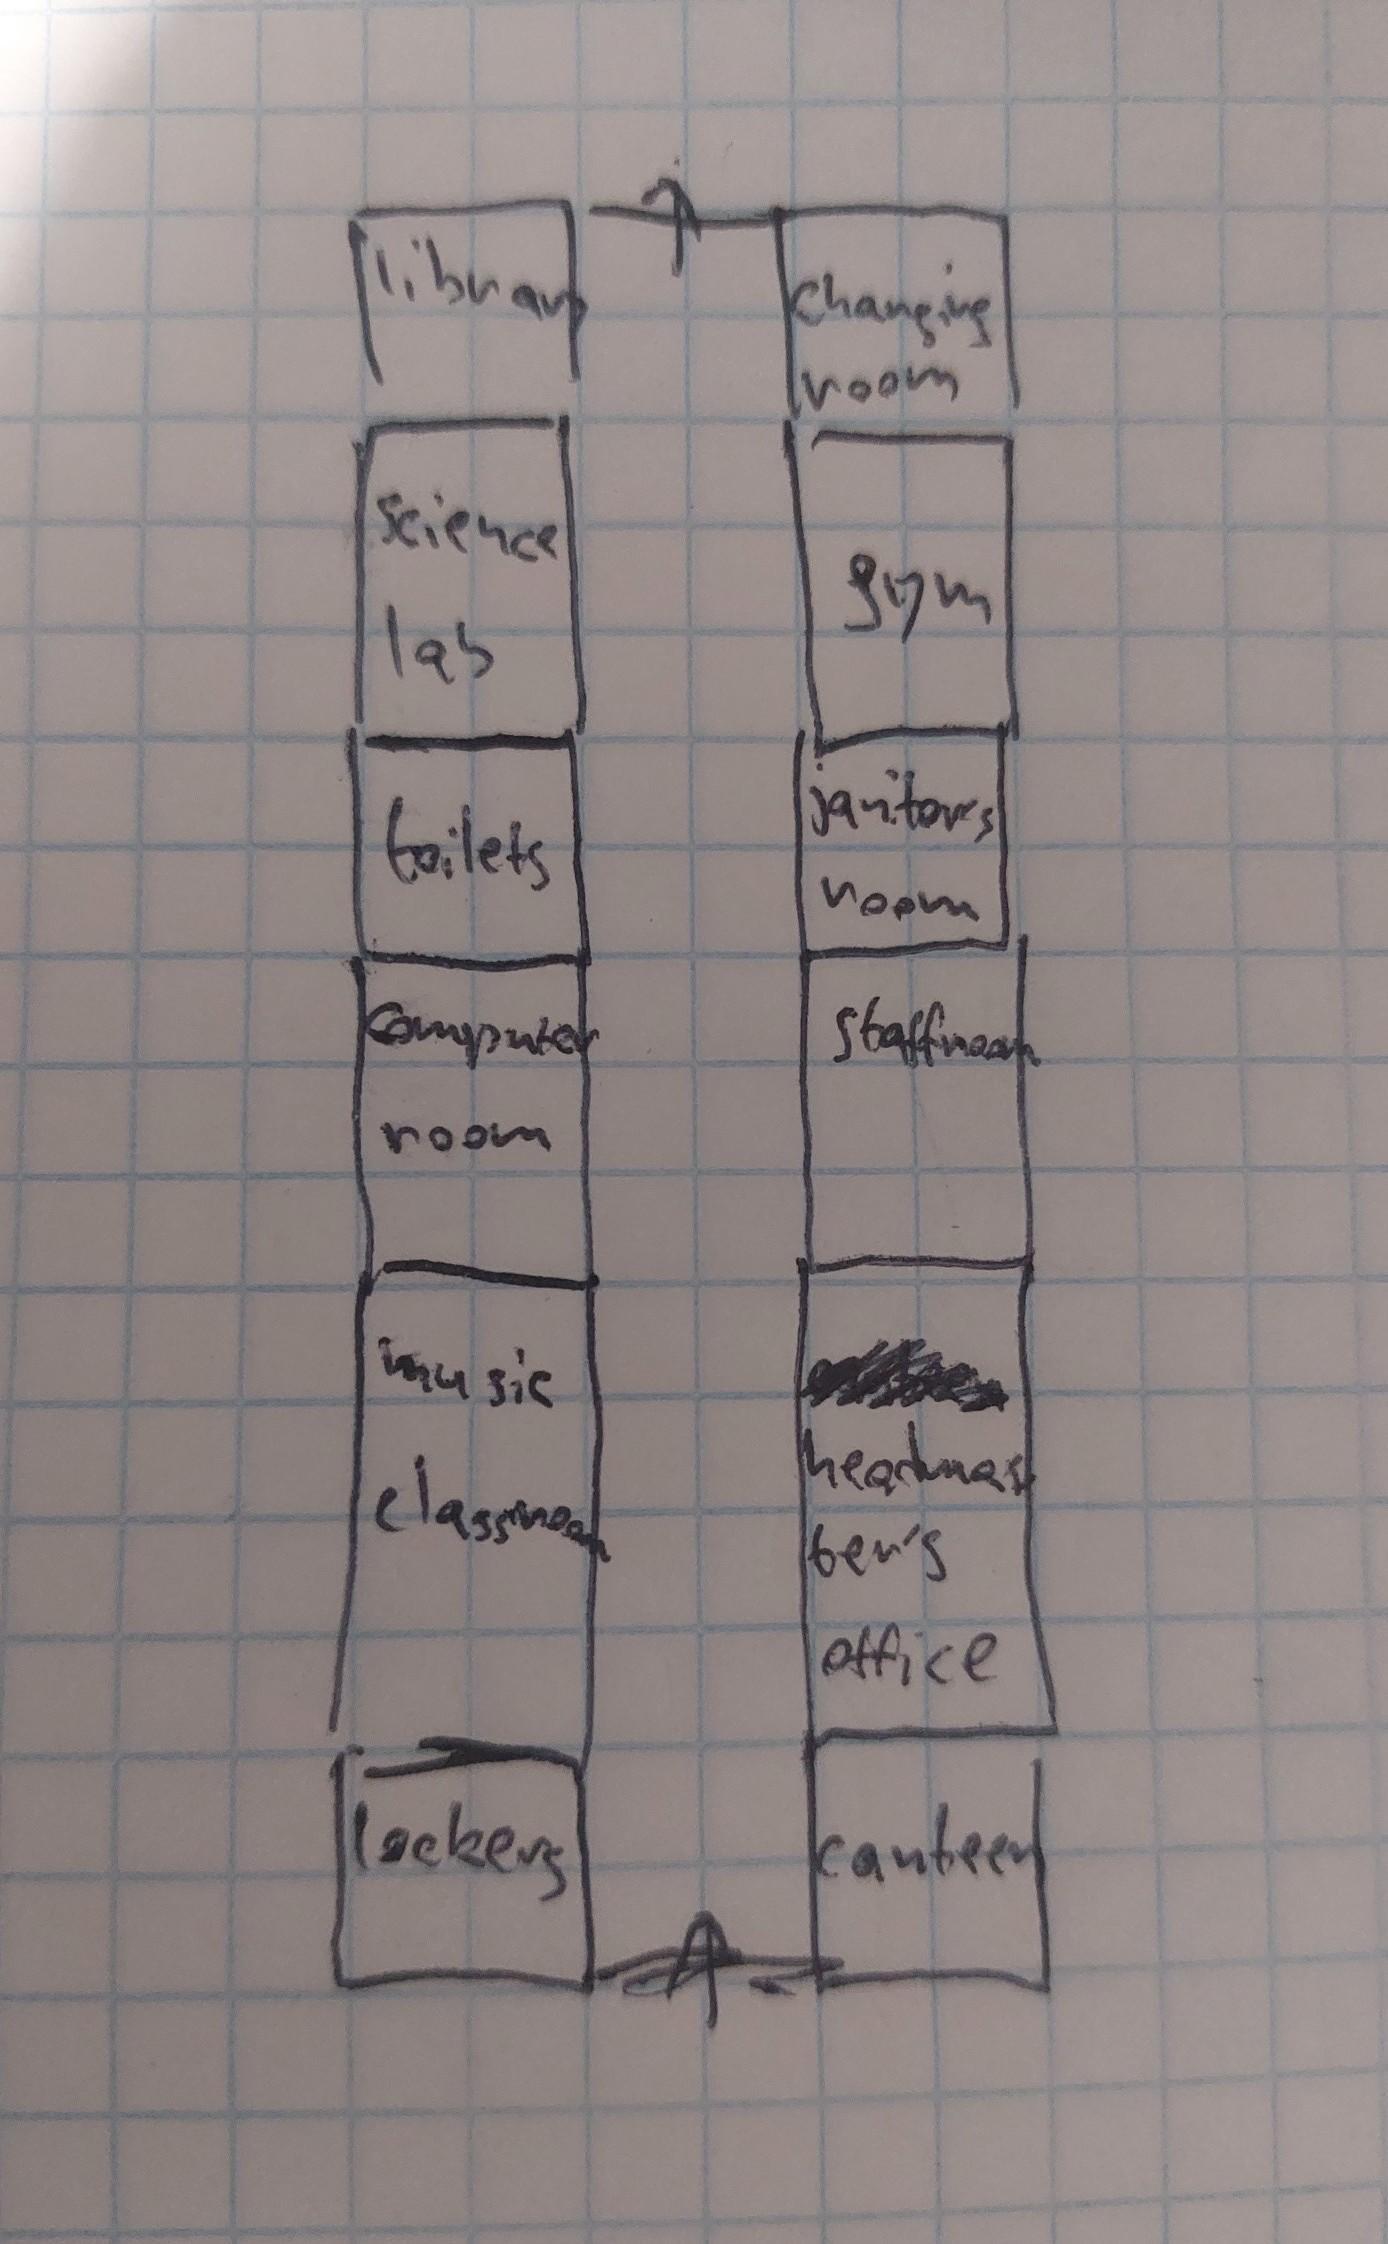 library
changing
room
science
lab
gym
toilets
janitor's
room
computer
room
staffroom
music
classroom
headmas
ter's
office
lockers
canteen